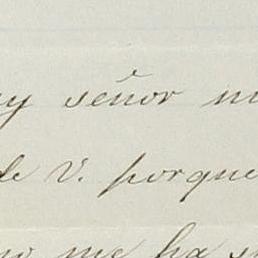 y señor m
de V. porque
no me ha s